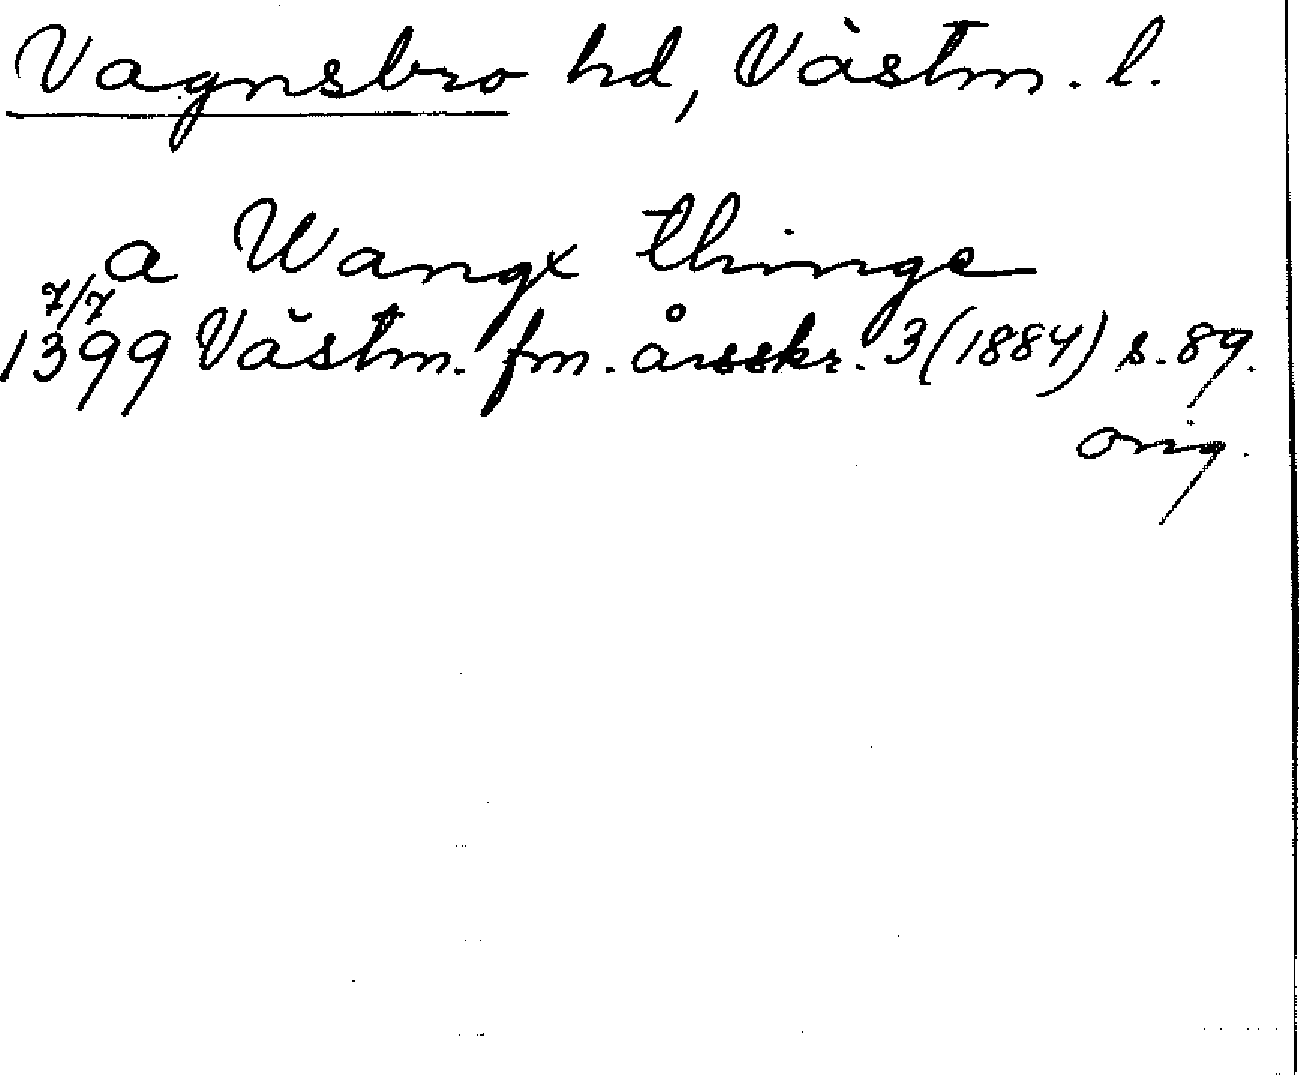 Vagnsbro hd, Västm. l.
a Wangx thinge
7/7
1399 Västm. fm. årsskr. 3 (1884) s. 89.
orig.